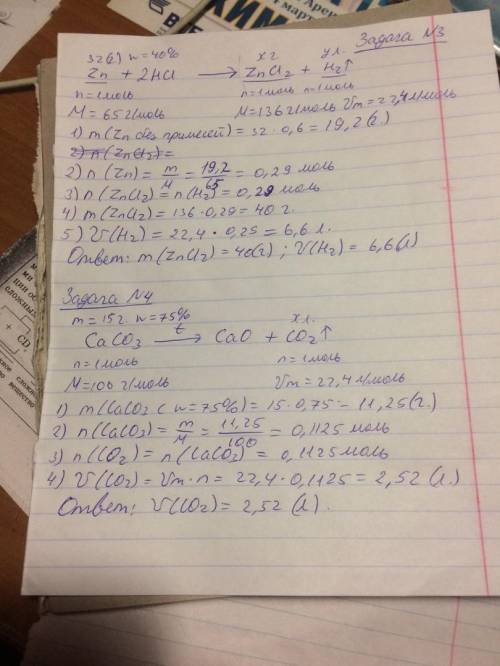 Задача №3
32(г) w=40% xг yл.
Zn + 2HCl → ZnCl₂ + H₂↑
n=1моль n=1моль n=1моль
M=65г/моль M=136г/моль Vm=22,4л/моль
1) m(Zn без примесей) = 32 · 0,6 = 19,2(г.)
2) n(ZnCl₂)=
2) n(Zn) = m/M = 19,2/65 = 0,29 моль
3) n(ZnCl₂) = n(H₂) = 0,29 моль
4) m(ZnCl₂) = 136 · 0,29 = 40 г.
5) V(H₂) = 22,4 · 0,29 = 6,6 л.
Ответ: m(ZnCl₂) = 40(г) ; V(H₂) = 6,6(л)
Задача №4
m=15г. w=75% xл.
CaCO₃ t→ CaO + CO₂↑
n=1моль n=1моль
M=100г/моль Vm=22,4л/моль
1) m(CaCO₃ с w=75%) = 15·0,75 = 11,25(г.)
2) n(CaCO₃) = m/M = 11,25/100 = 0,1125 моль
3) n(CO₂) = n(CaCO₃) = 0,1125 моль
4) V(CO₂) = Vm·n = 22,4·0,1125 = 2,52 (л.)
Ответ: V(CO₂) = 2,52 (л).